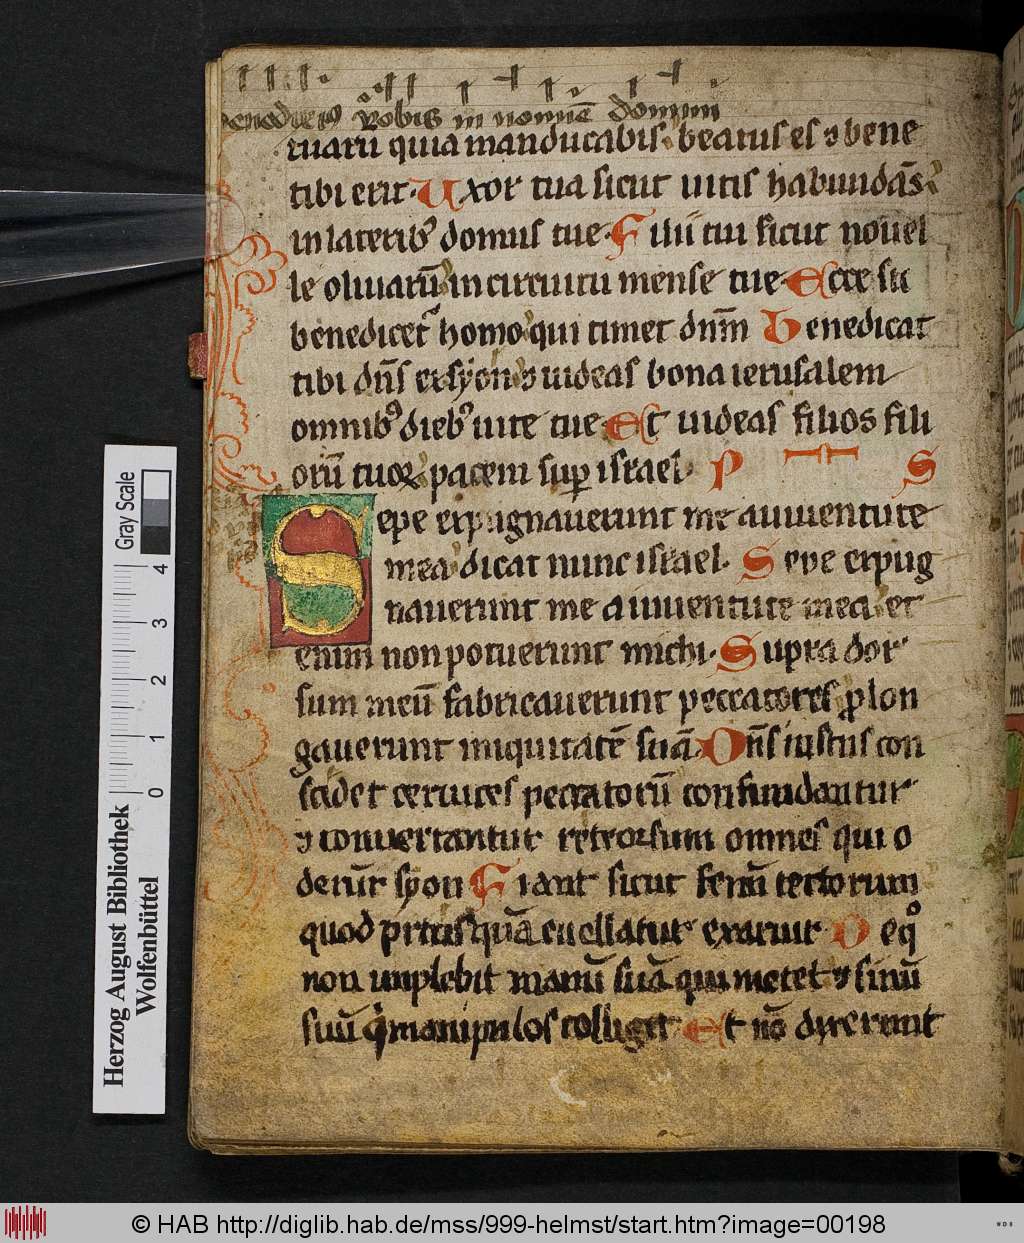 benedicim9 vobis in nomine domini
tuarū quia manducabis. beatus es ⁊ bene
tibi erit. Uxor tua sicut uitis habundās
in laterib9 domus tue. Filii tui sicut nouel
le oliuarū in circuitu mense tue. Ecce sic
benedicetr homo qui timet dnm̄ Benedicat
tibi dn̄s ex syon ⁊ uideas bona ierusalem
omnib9 dieb9 uite tue. Et uideas filios fili
orū tuoꝝ pacem suꝑ israel. P S
Sepe expugnauerunt me a iuuentute
mea dicat nunc israel. Sepe expug
nauerunt me a iuuentute mea et
enim non potuerunt michi. Supra dor
sum meū fabricauerunt peccatores ꝓlon
gauerunt iniquitatē suā. Dn̄s iustus con
cidet ceruices peccatorū confundantur
⁊ conuertantur retrorsum omnes qui o
derūt syon Fiant sicut fenū tectorum
quod priusquā euellatur exaruit De qͦ
non implebit manū suā qui metet ⁊ sinū
suū qͥ manipulos colliget. Et nō dixerunt
Gray Scale
0 1 2 3 4
Herzog August Bibliothek
Wolfenbüttel
© HAB http://diglib.hab.de/mss/999-helmst/start.htm?image=00198